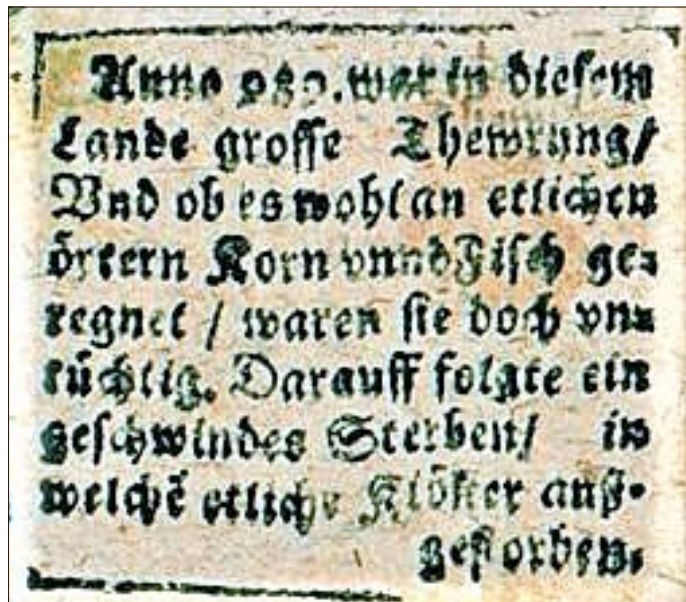 Anno 989. war in diesem
Lande grosse Thewrung/
Vnd ob es wohl an etlichen
örtern Korn vnnd Fisch ge-
regnet / waren sie doch vn-
tüchtig. Darauff folgte ein
geschwindes Sterben/ in
welchẽ etliche Klöster auß-
gestorben.